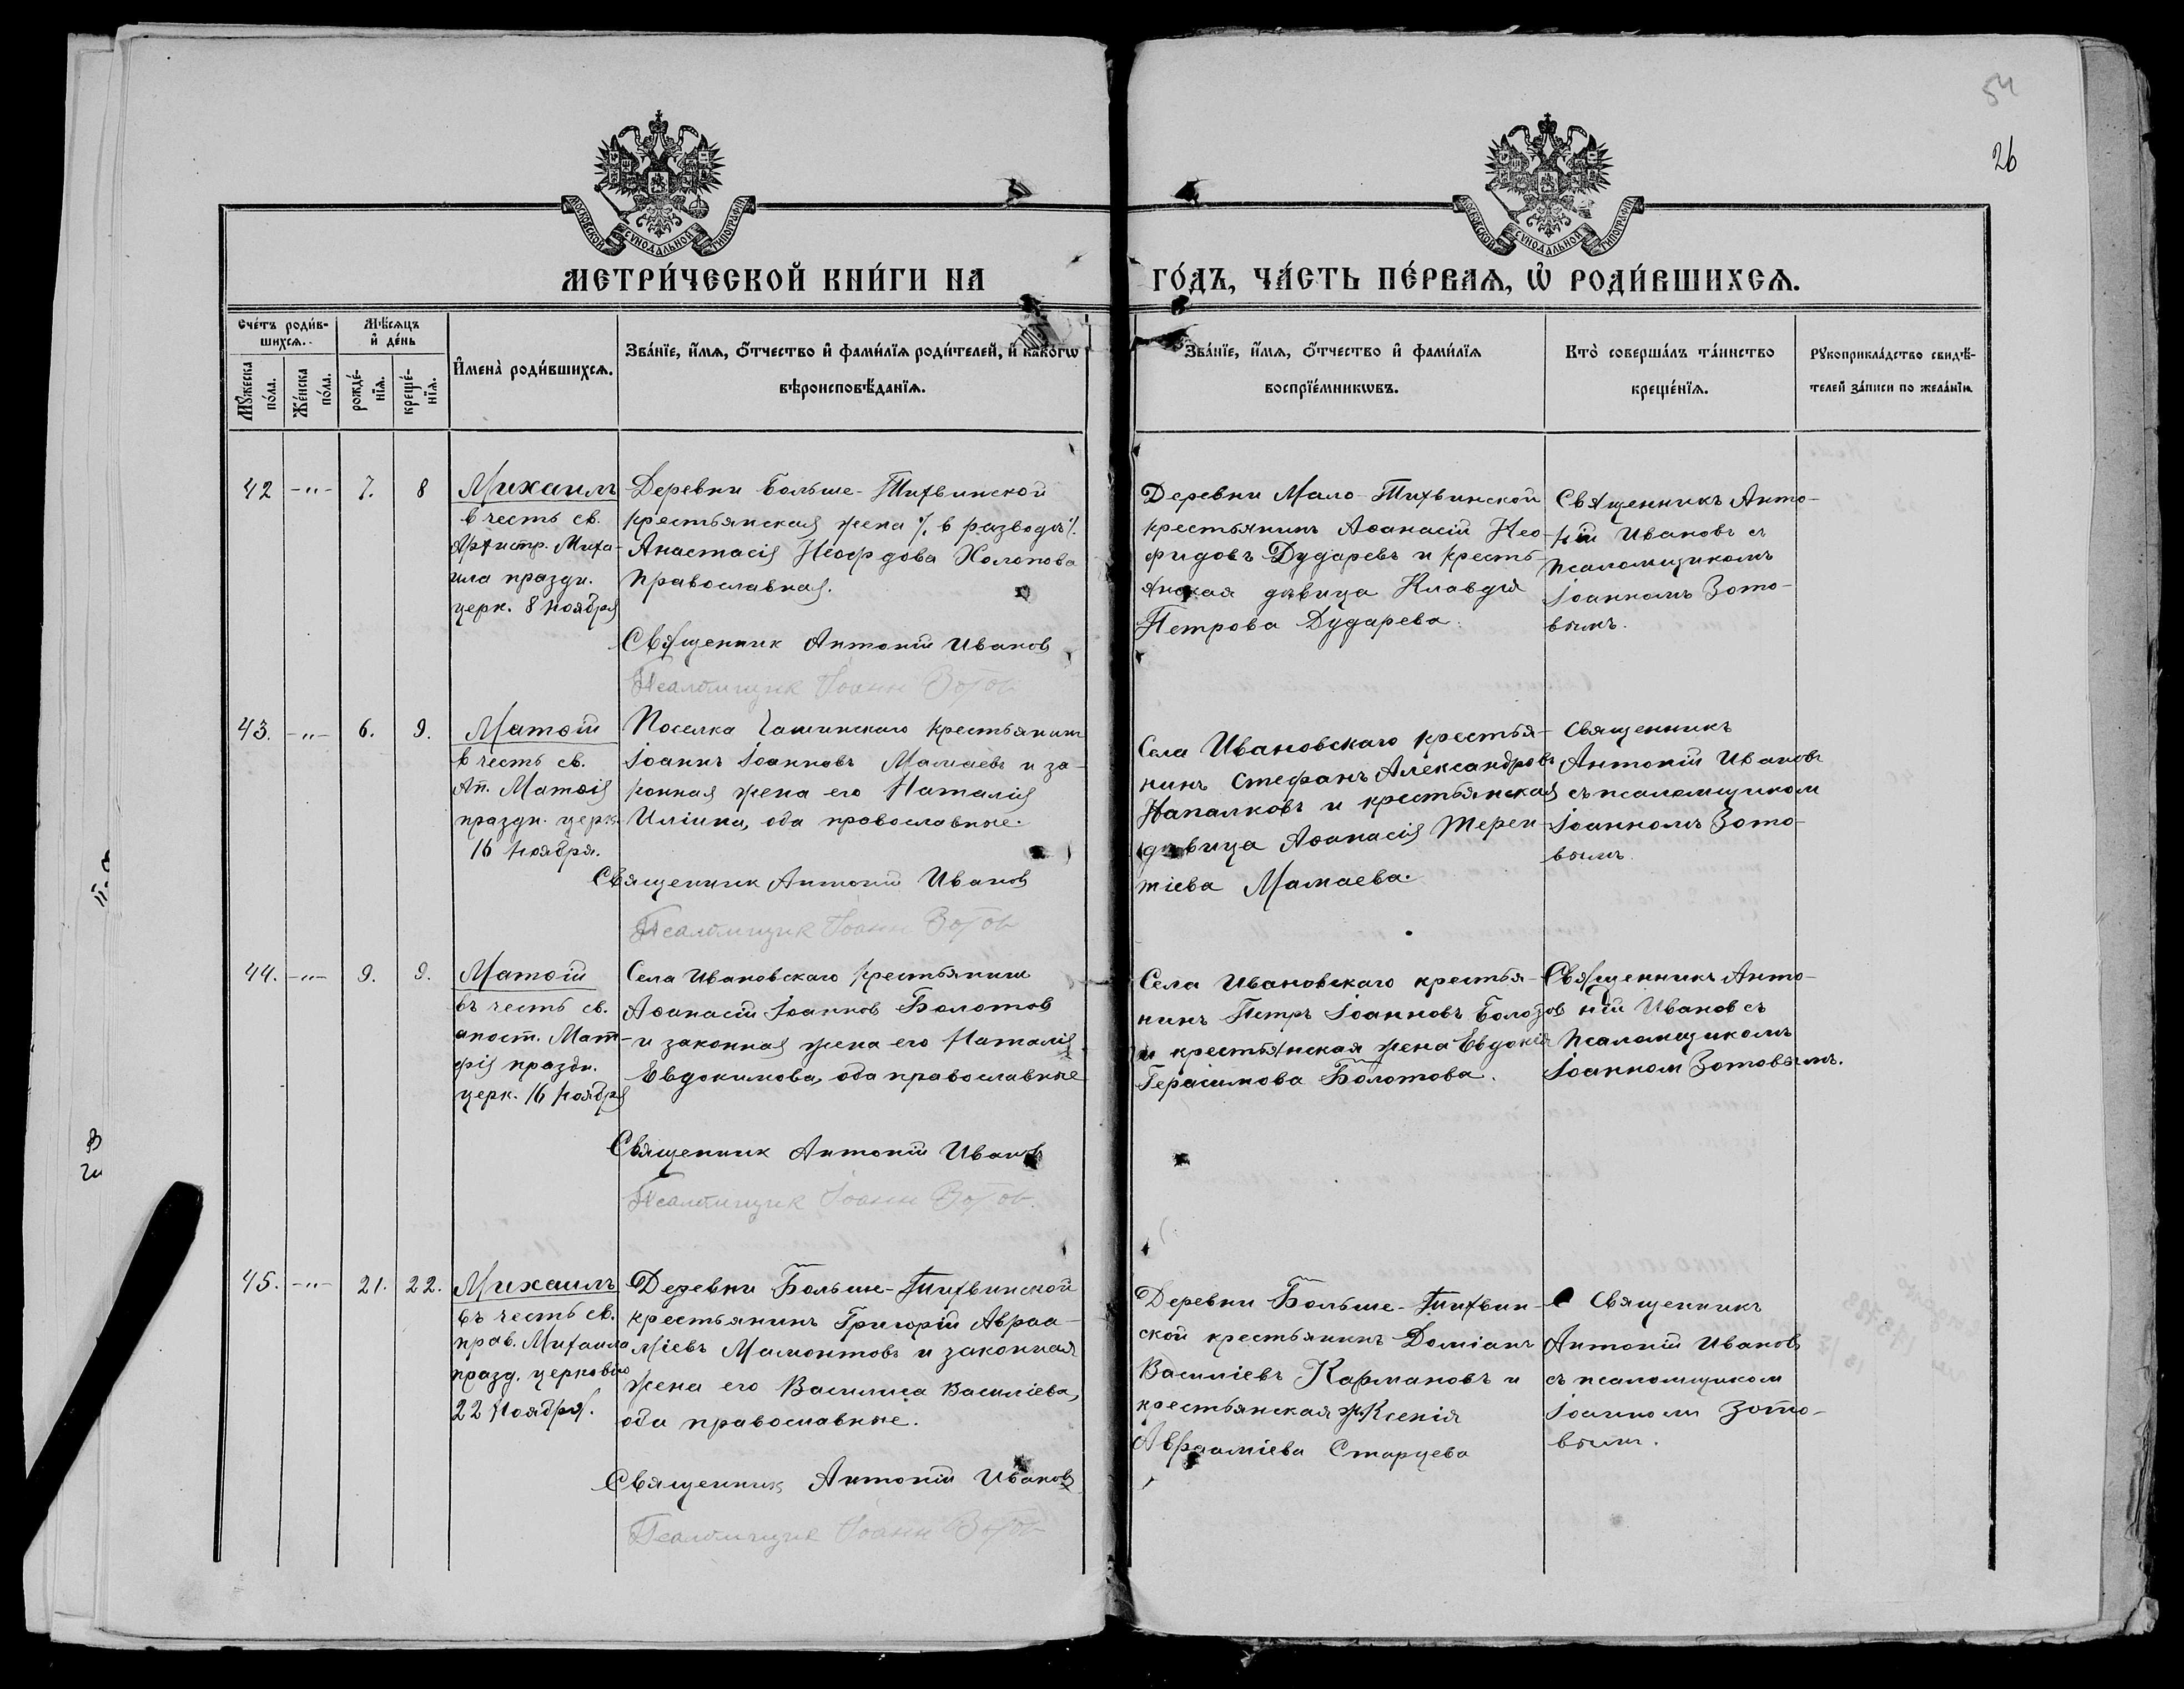 54
26
МОСКОВСКОЙ СѴНОДАЛЬНОЙ ТИПОГРАФІИ
МОСКОВСКОЙ СѴНОДАЛЬНОЙ ТИПОГРАФІИ
МЕТРИ́ЧЕСКОЙ КНИ́ГИ НА
ГО́ДЪ, ЧА́СТЬ ПЕ́РВАѦ, Ѽ РОДИ́ВШИХСѦ.
Сче́тъ роди́в-
шихсѧ.
Мѣ́сѧцъ
и҆ де́нь
Мꙋ́жеска
по́ла.
Же́нска
по́ла.
рожде́-
нїѧ.
креще́-
нїѧ.
И҆мена̀ роди́вшихсѧ.
Зва́нїе, и҆́мѧ, ѻ҆́тчество и҆ фами́лїѧ роди́телей, и҆ како́гѡ
вѣроисповѣ́данїѧ.
Зва́нїе, и҆́мѧ, ѻ҆́тчество и҆ фами́лїѧ
воспрїе́мникѡвъ.
Кто̀ соверша́лъ та́инство
креще́нїѧ.
Рꙋкоприкла́дство свидѣ́-
телей за́писи по жела́нїю
42 -"- 7. 8
Михаилъ
в честь св.
Архистр. Миха-
ила праздн.
церк. 8 ноября
Деревни Больше-Тихвинской
крестьянская жена ⁒ в разводѣ ⁒
Анастасія Неоф дова Холопова
православная.
Священник Антоній Иванов
Псаломщик Іоанн Зотов
Деревни Мало-Тихвинской
крестьянинъ Аѳанасій Нео-
фидовъ Дударевъ и кресть-
янская дѣвица Клавдія
Петрова Дударева.
Священникъ Анто-
ній Ивановъ съ
псаломщикомъ
Іоанномъ Зото-
вымъ.
43. -"- 6. 9.
Матѳій
в честь св.
Ап. Матѳія
праздн. церк.
16 ноября.
Поселка Чашинскаго крестьянин
Іоаннъ Іоанновъ Мамаевъ и за-
конная жена его Наталія
Иліина, оба православные.
Священник Антоній Иванов
Псаломщик Іоанн Зотов
Села Ивановскаго крестья-
нинъ Стефанъ Александровъ
Напалковъ и крестьянская
дѣвица Аѳанасія Терен-
тіева Мамаева.
Священникъ
Антоній Ивановъ
съ псаломщиком
Іоанномъ Зото-
вымъ
44. -"- 9. 9.
Матѳій
въ честь св.
апост. Мат-
фія праздн.
церк. 16 ноября
Села Ивановскаго крестьянин
Аѳанасій Іоаннов Болотов
и законная жена его Наталія
Евдокимова, оба православные
Священник Антоній Иванов
Псаломщик Іоанн Зотов.
Села Ивановскаго крестья-
нинъ Петръ Іоанновъ Болотов
и крестьянская жена Евдокія
Герасимова Болотова.
Священникъ Анто-
ній Иванов съ
псаломщикомъ
Іоанном Зотовымъ.
45. -"- 21. 22.
Михаилъ
въ честь св.
прав. Михаила
празд. церковію
22 Ноября.
Деревни Больше-Тихвинской
крестьянинъ Григорій Авраа-
міевъ Мамонтовъ и законная
жена его Василиса Василіева,
оба православные.
Священник Антоній Иванов
Псаломщик Іоанн Зотов
Деревни Больше-Тихвин-
ской крестьянинъ Доміанъ
Василіевъ Кармановъ и
крестьянская ж Ксенія
Авраамiева Старцева
Священникъ
Антоній Иванов
съ псаломщиком
Іоанном Зото-
вымъ.